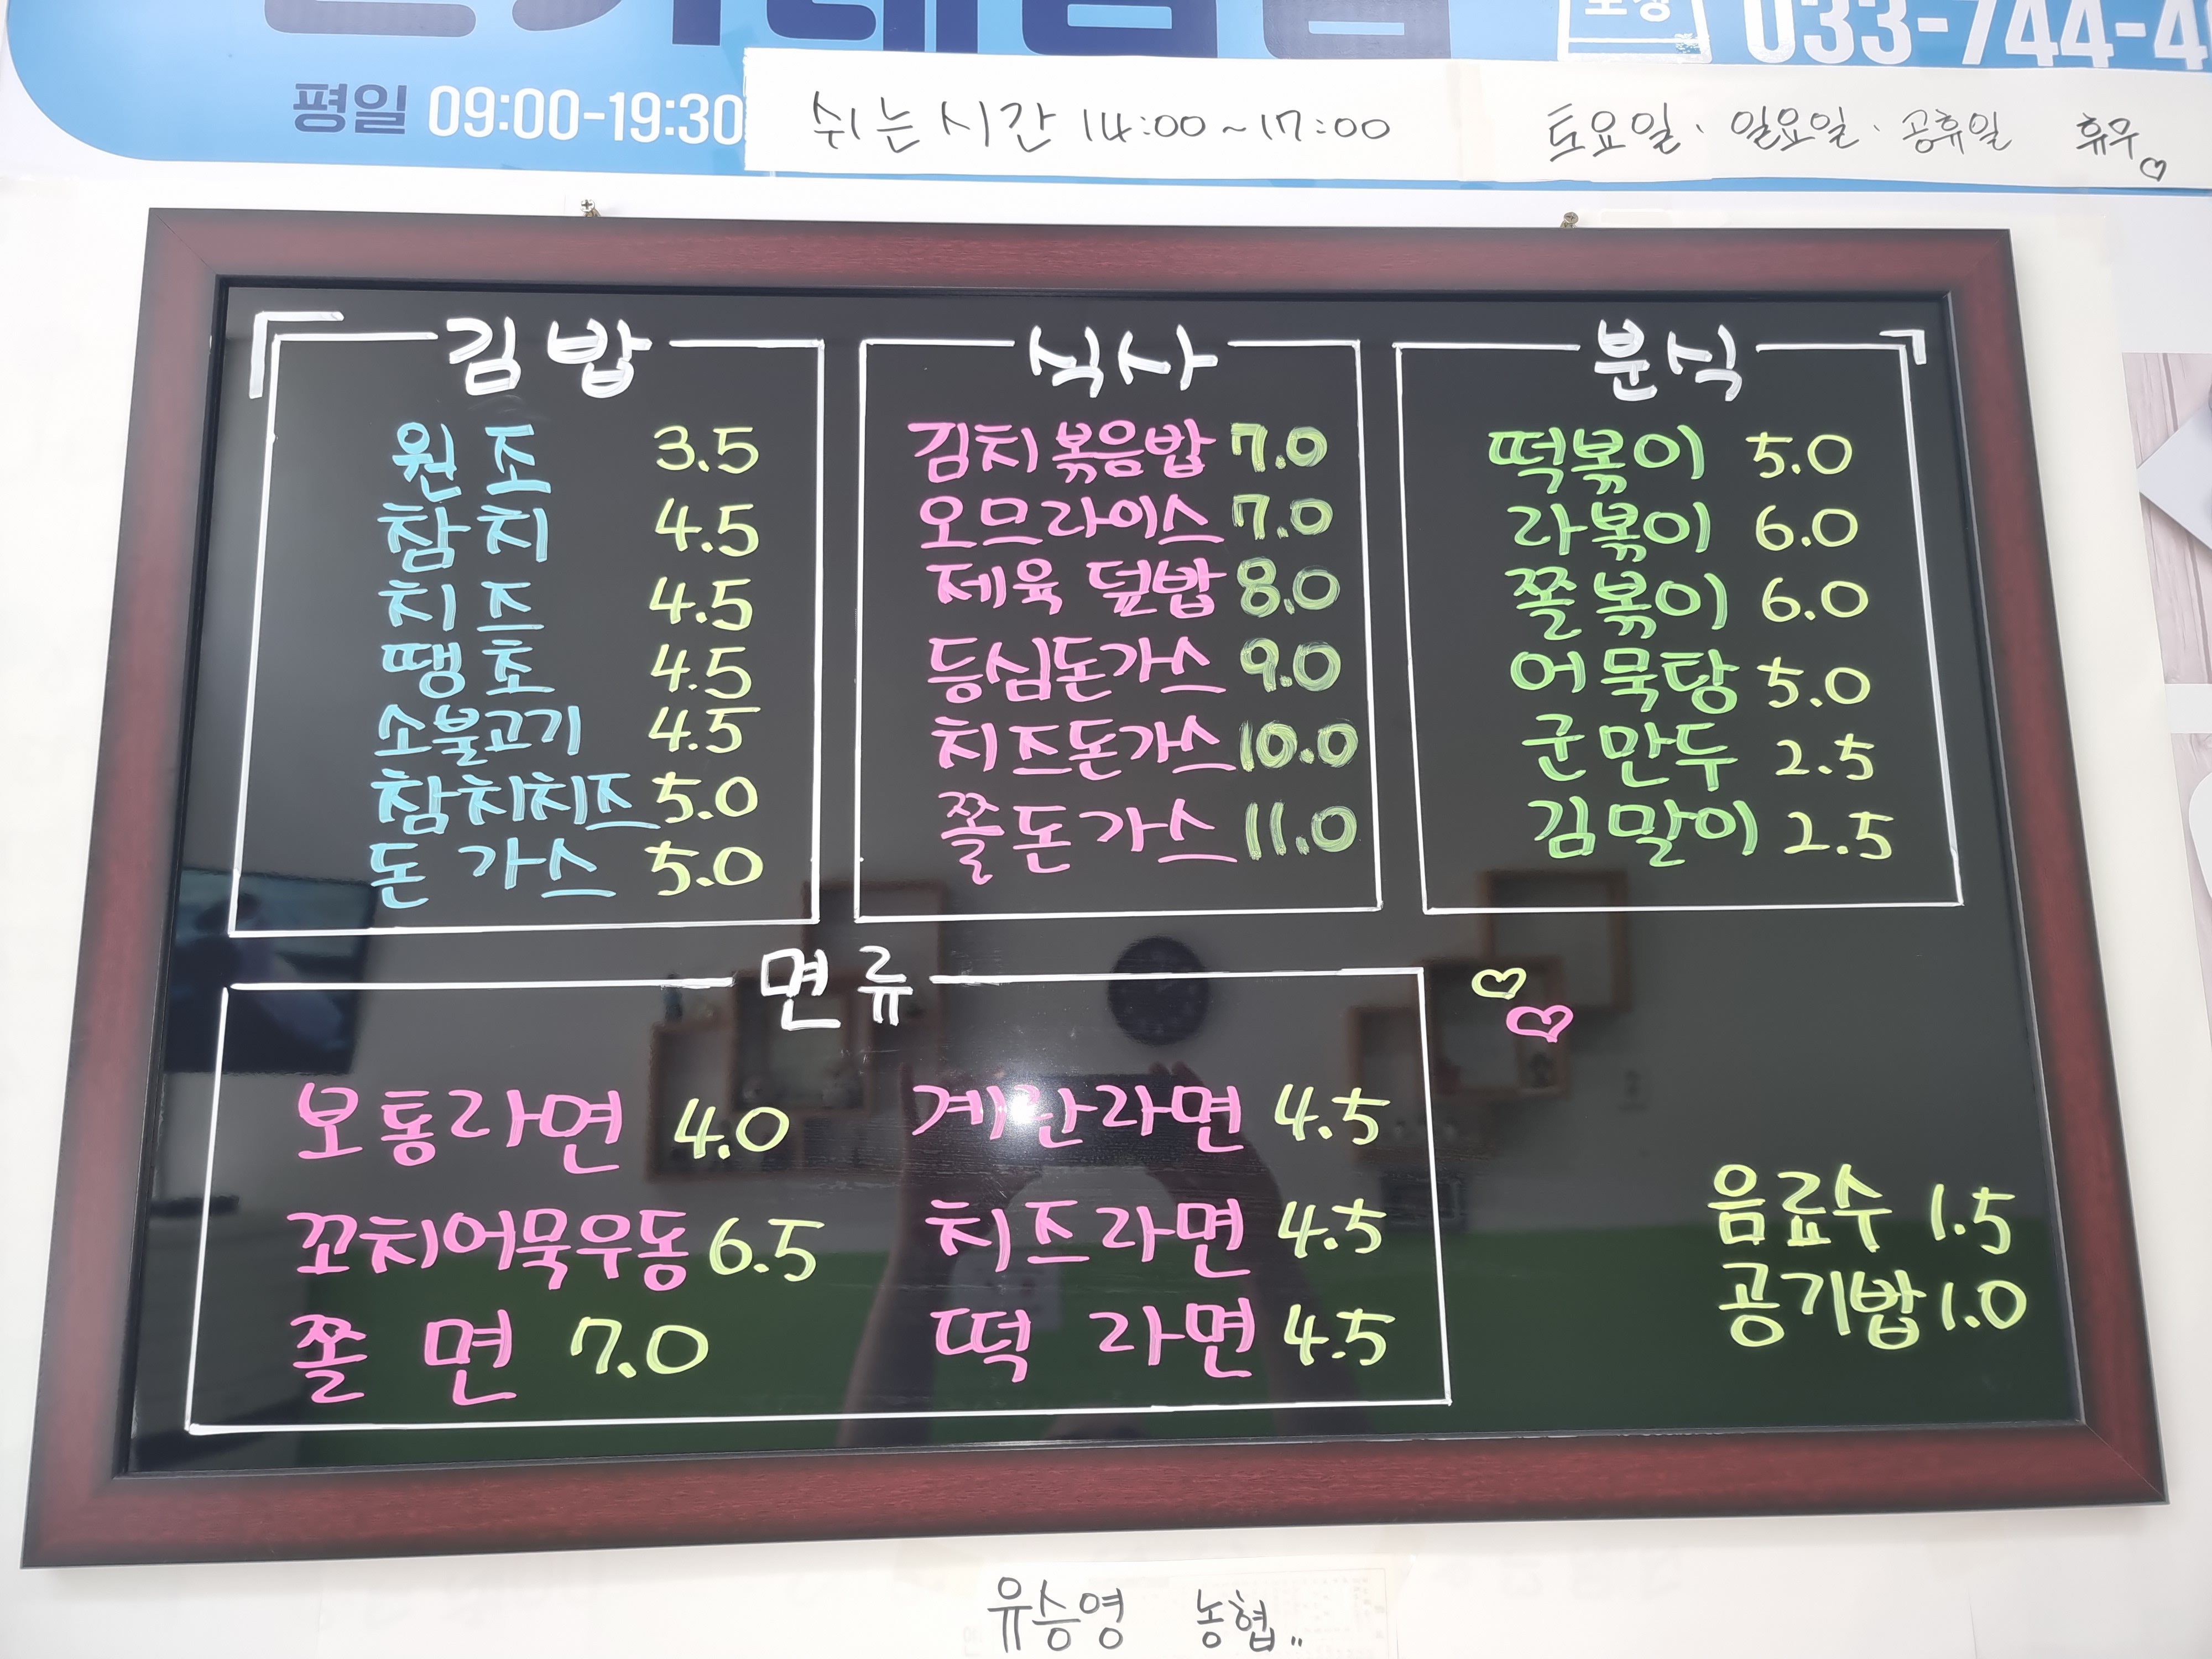 033-744-4
평일 09:00-19:30
쉬는시간 14:00~17:00
토요일·일요일·공휴일 휴무♡
김밥
원조 3.5
참치 4.5
치즈 4.5
땡초 4.5
소불고기 4.5
참치치즈 5.0
돈가스 5.0
식사
김치볶음밥 7.0
오므라이스 7.0
제육덮밥 8.0
등심돈가스 9.0
치즈돈가스 10.0
쫄돈가스 11.0
분식
떡볶이 5.0
라볶이 6.0
쫄볶이 6.0
어묵탕 5.0
군만두 2.5
김말이 2.5
면류
보통라면 4.0
꼬치어묵우동 6.5
쫄면 7.0
계란라면 4.5
치즈라면 4.5
떡라면 4.5
음료수 1.5
공기밥 1.0
유승영 농협..